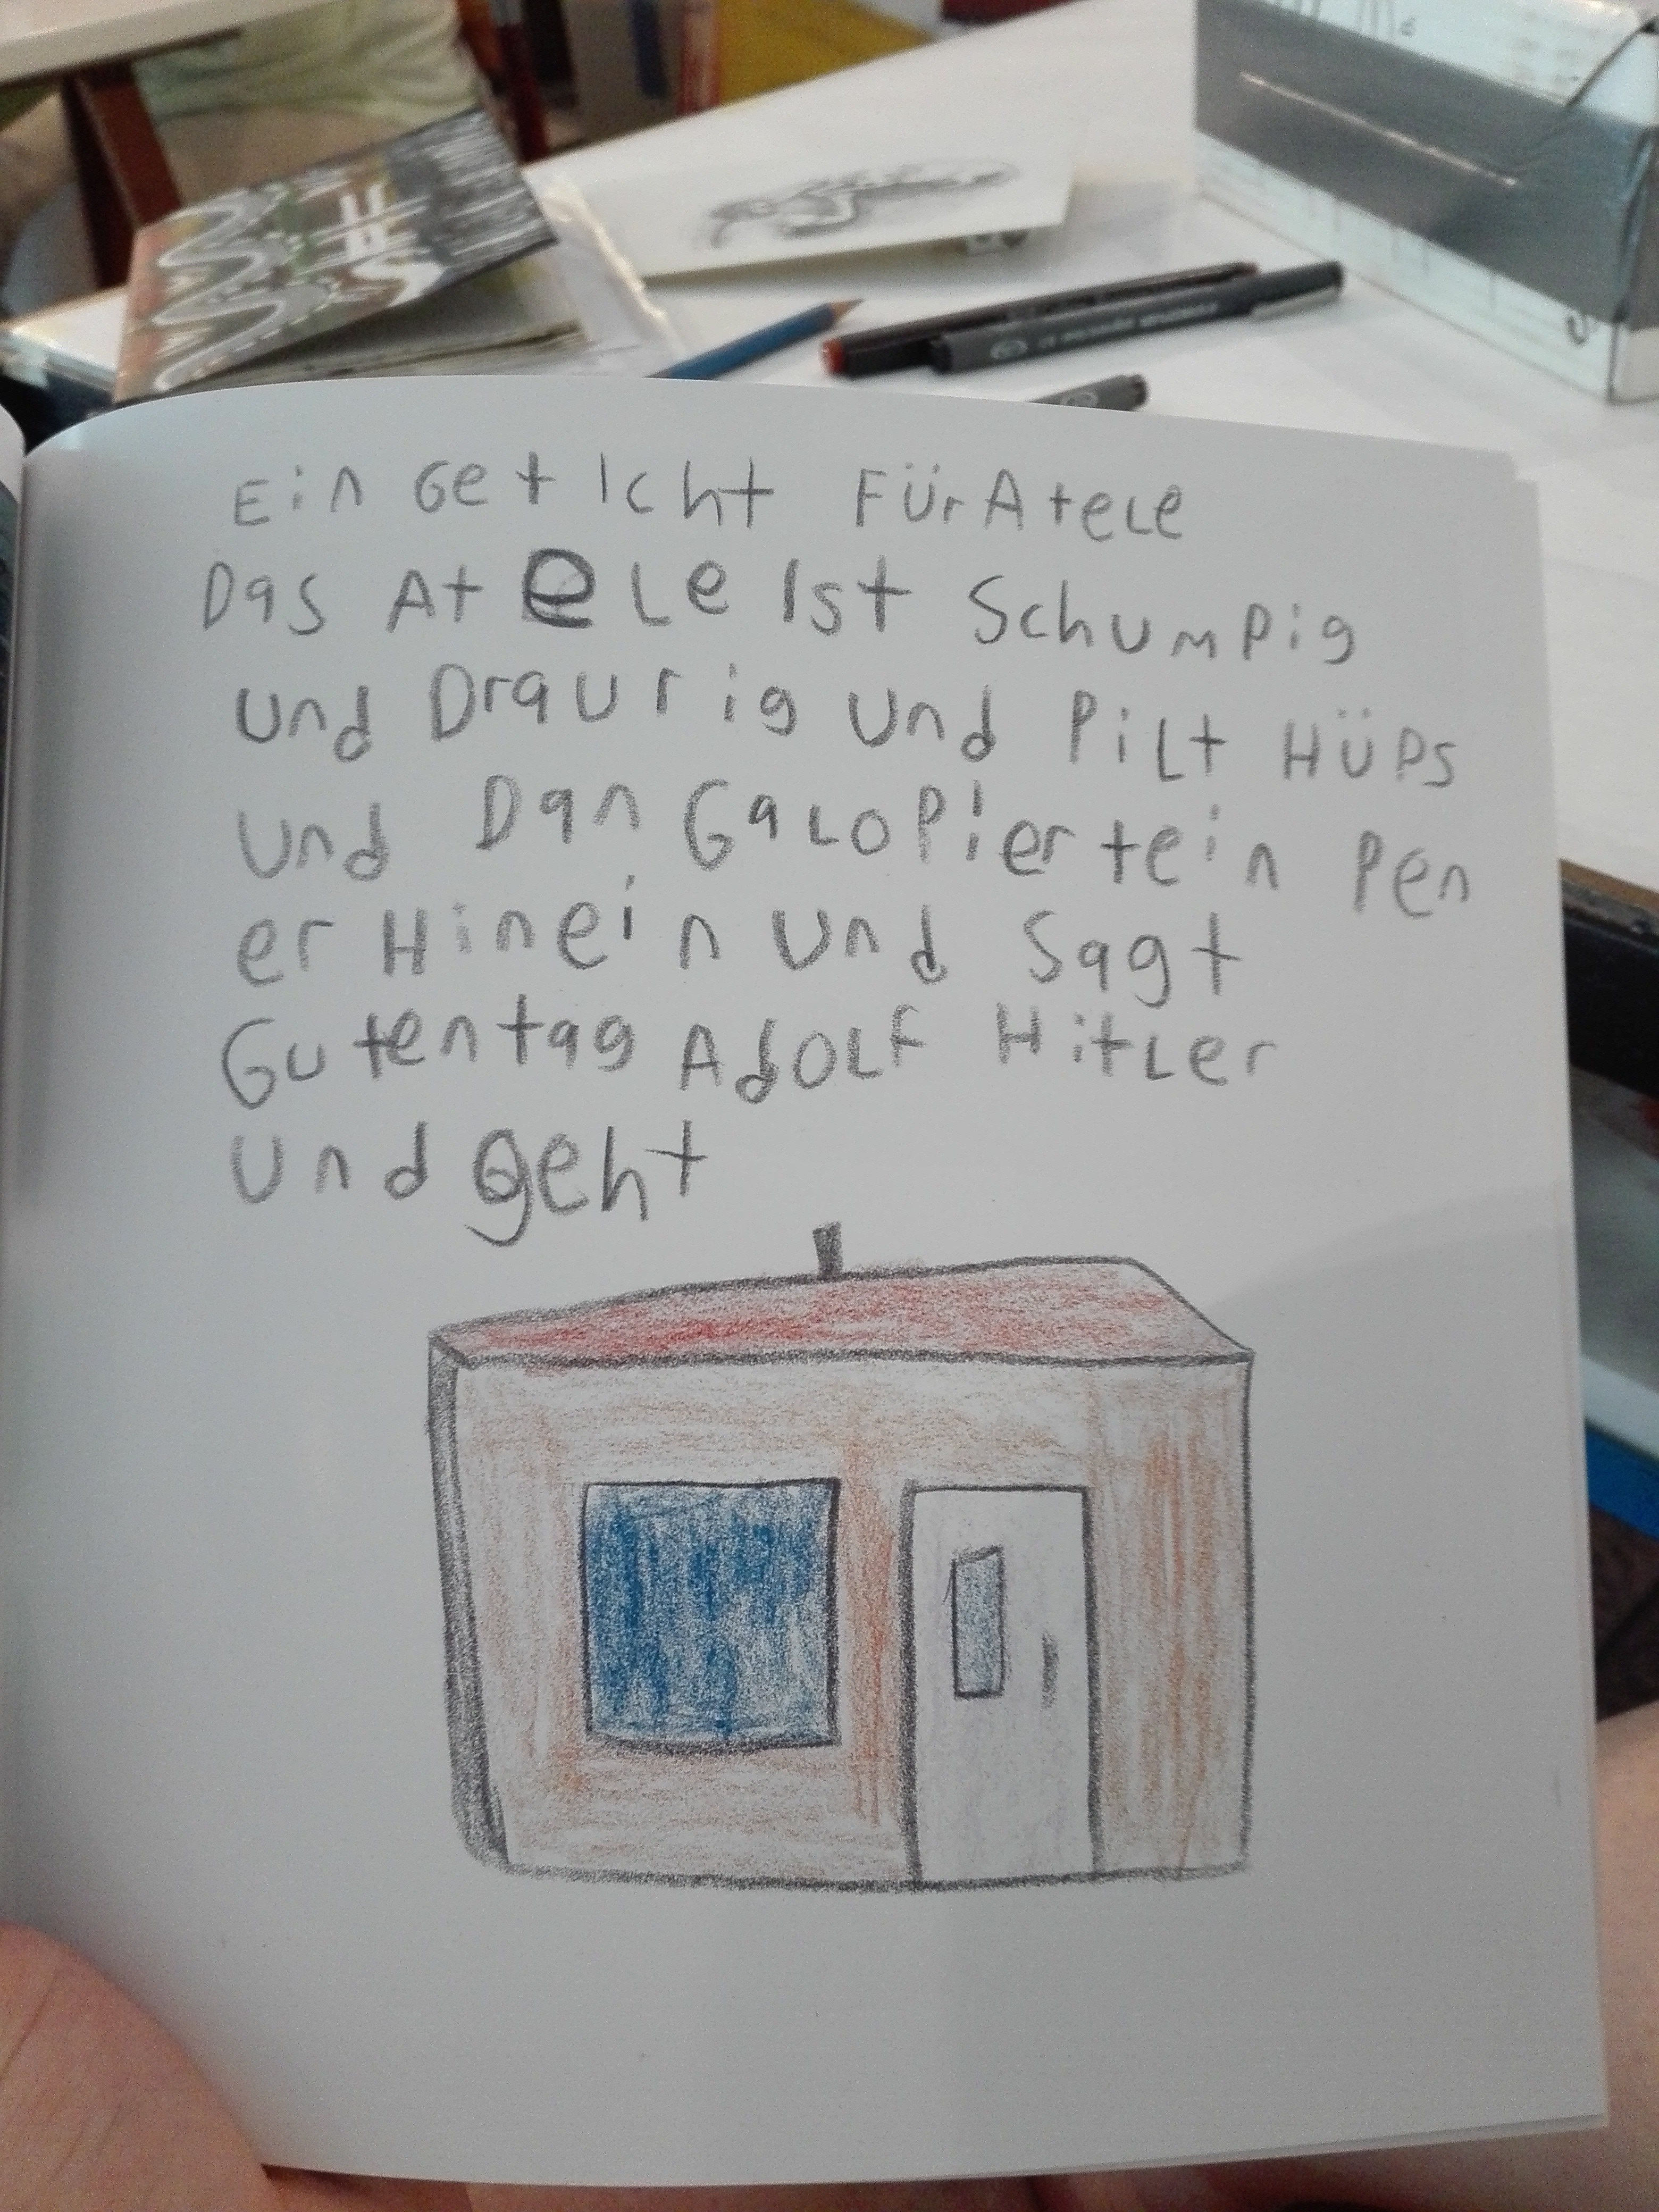 Ein Geticht Für Atele
Das Atele Ist Schumpig
und Draurig und Pilt Hüps
und Dan Galopiertein Pen
er Hinein und Sagt
Gutentag Adolf Hitler
und geht